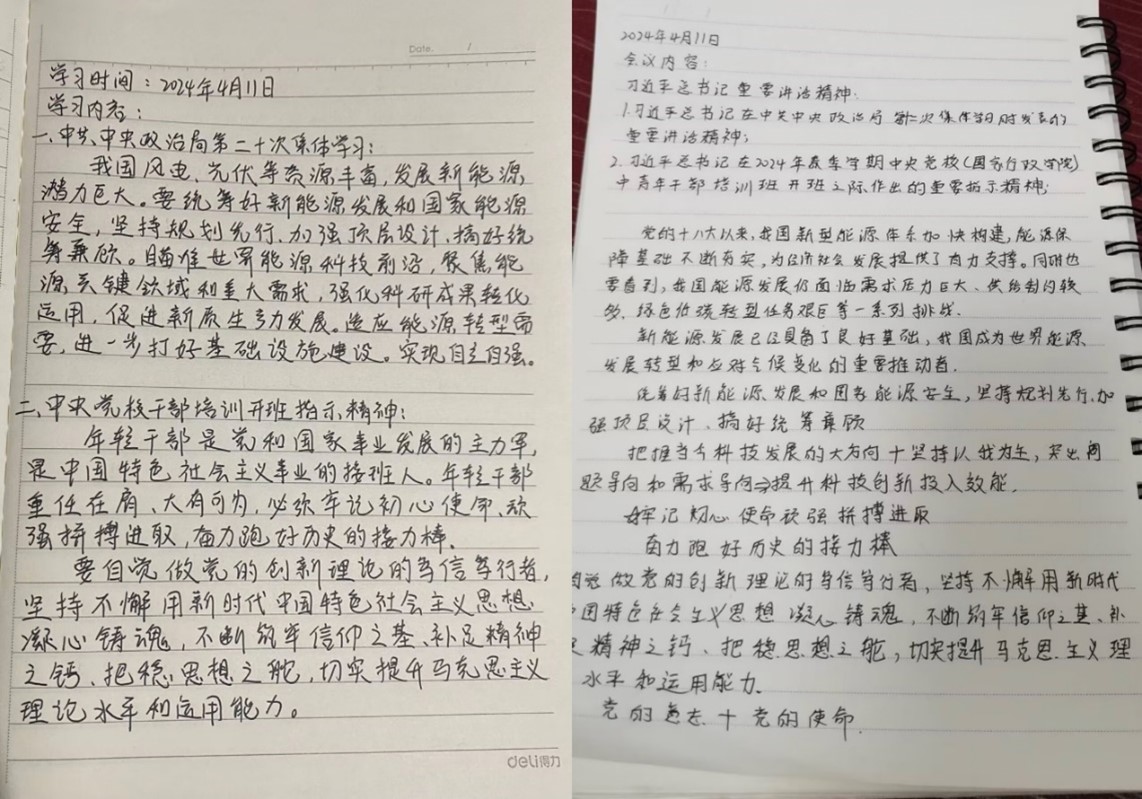 Date. /
学习时间：2024年4月11日
学习内容：
一、中共中央政治局第二十次集体学习：
我国风电、光伏等资源丰富，发展新能源
潜力巨大。要统筹好新能源发展和国家能源
安全，坚持规划先行、加强顶层设计、搞好统
筹兼顾。瞄准世界能源科技前沿，聚焦能
源关键领域和重大需求，强化科研成果转化
运用，促进新质生产力发展。适应能源转型需
要，进一步打好基础设施建设。实现自立自强。
二、中央党校干部培训开班指示精神：
年轻干部是党和国家事业发展的主力军，
是中国特色社会主义事业的接班人。年轻干部
重任在肩、大有可为，必须牢记初心使命、顽
强拼搏进取，奋力跑好历史的接力棒。
要自觉做党的创新理论的笃信笃行者，
坚持不懈用新时代中国特色社会主义思想
凝心铸魂，不断筑牢信仰之基、补足精神
之钙、把稳思想之舵，切实提升马克思主义
理论水平和运用能力。
deli得力
2024年4月11日
会议内容：
习近平总书记重要讲话精神：
1.习近平总书记在中共中央政治局第二次集体学习时发表的
重要讲话精神；
2.习近平总书记在2024年春季学期中央党校(国家行政学院)
中青年干部培训班开班之际作出的重要指示精神；
党的十八大以来，我国新型能源体系加快构建，能源保
障基础不断夯实，为经济社会发展提供了有力支撑。同时也
要看到，我国能源发展仍面临需求压力巨大、供给制约较
多、绿色低碳转型任务艰巨等一系列挑战.
新能源发展已经具备了良好基础，我国成为世界能源
发展转型和应对气候变化的重要推动者.
统筹好新能源发展和国家能源安全，坚持规划先行、加
强顶层设计、搞好统筹兼顾
把握当今科技发展的大方向十坚持以我为主，突出问
题导向和需求导向⇒提升科技创新投入效能.
牢记初心使命顽强拼搏进取
奋力跑好历史的接力棒
自觉做党的创新理论的笃信笃行者，坚持不懈用新时代
中国特色社会主义思想凝心铸魂，不断筑牢信仰之基、补
足精神之钙、把稳思想之舵，切实提升马克思主义理
水平和运用能力.
党的意志十党的使命.